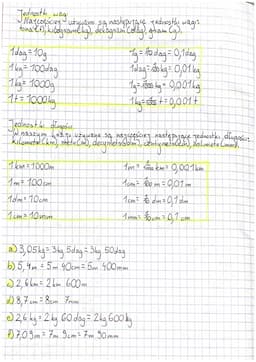 Jednostki wagi
Najczęściej używane są następujące jednostki wagi:
tona(t), kilogram(kg), dekagram(dag), gram(g).
1dag = 10g
1g = 1/10 dag = 0,1dag
1kg = 100dag
1dag = 1/100 kg = 0,01kg
1kg = 1000g
1g = 1/1000 kg = 0,001kg
1t = 1000kg
1kg = 1/1000 t = 0,001t
Jednostki długości
W naszym kraju używane są najczęściej następujące jednostki długości:
kilometr(km), metr(m), decymetr(dm), centymetr(cm), milimetr(mm).
1km = 1000m
1m = 1/1000 km = 0,001km
1m = 100cm
1cm = 1/100 m = 0,01m
1dm = 10cm
1cm = 1/10 dm = 0,1dm
1cm = 10mm
1mm = 1/10 cm = 0,1cm
a) 3,05kg = 3kg 5dag = 3kg 50dag
b) 5,4m = 5m 40cm = 5m 400mm
c) 2,6km = 2km 600m
d) 8,7cm = 8cm 7mm
e) 2,6kg = 2kg 60dag = 2kg 600kg
f) 7,09m = 7m 9cm = 7m 90mm